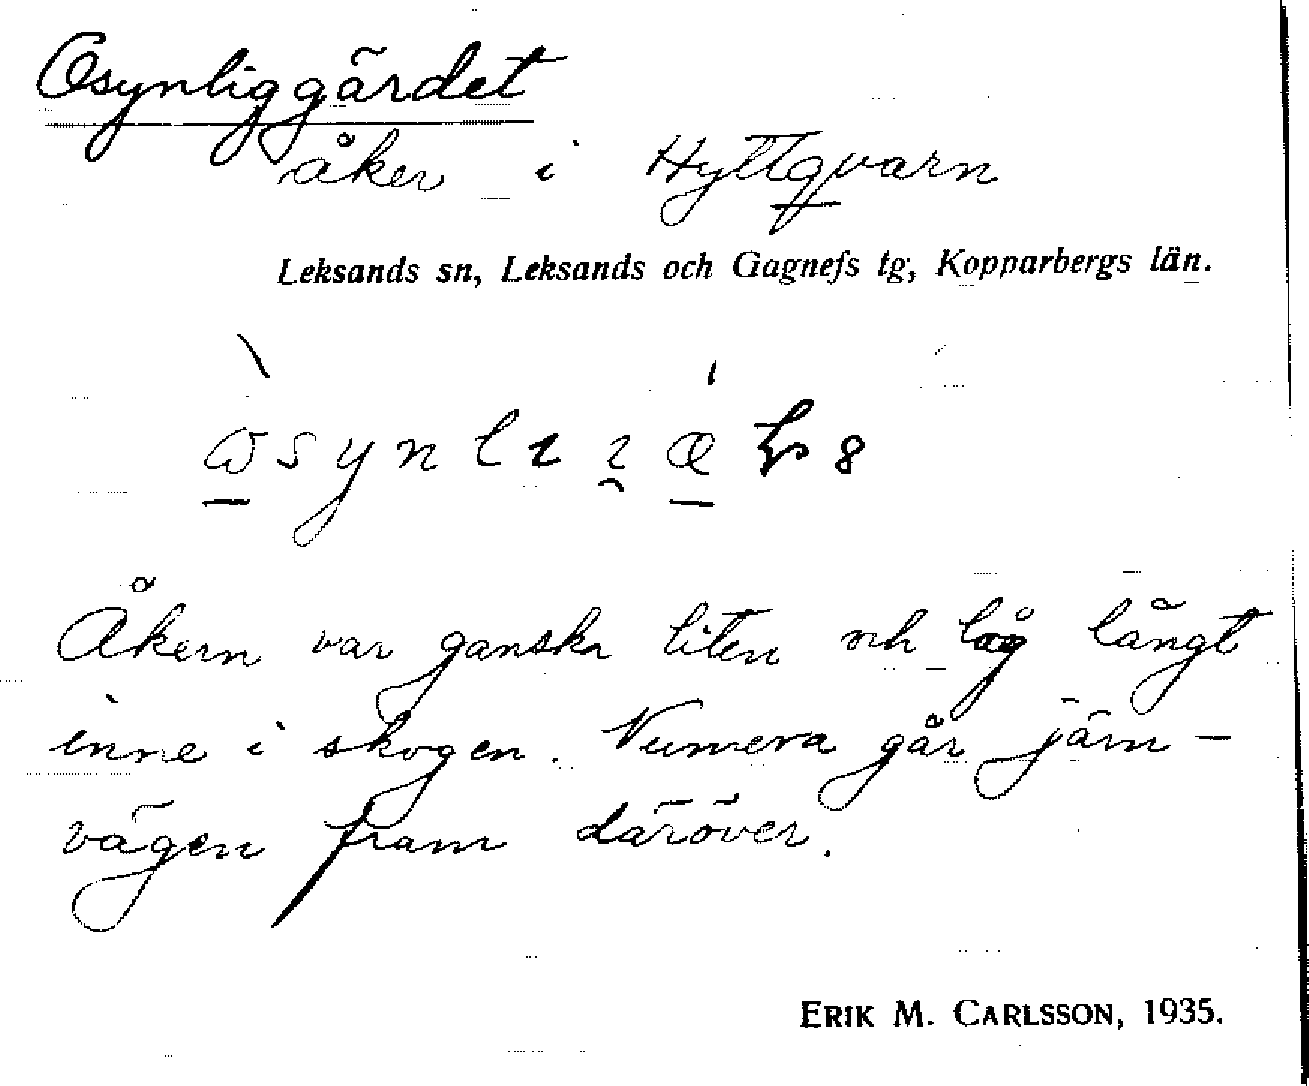 Osynliggärdet
åker i Hyttqvarn
Leksands sn, Leksands och Gagnefs tg, Kopparbergs län.
Åkern var ganska liten och låg långt
inne i skogen. Numera går järn-
vägen fram däröver.
ERIK M. CARLSSON, 1935.